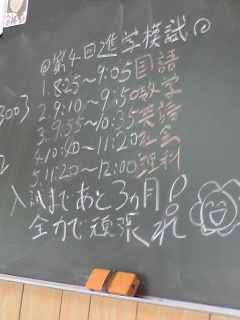 @第4回進学模試@
1. 8:25〜9:05 国語
2. 9:10〜9:50 数学
3. 9:55〜10:35 英語
4. 10:40〜11:20 社会
5. 11:20〜12:00 理科
入試まであと3ヵ月!
全力で頑張れ
3003
2